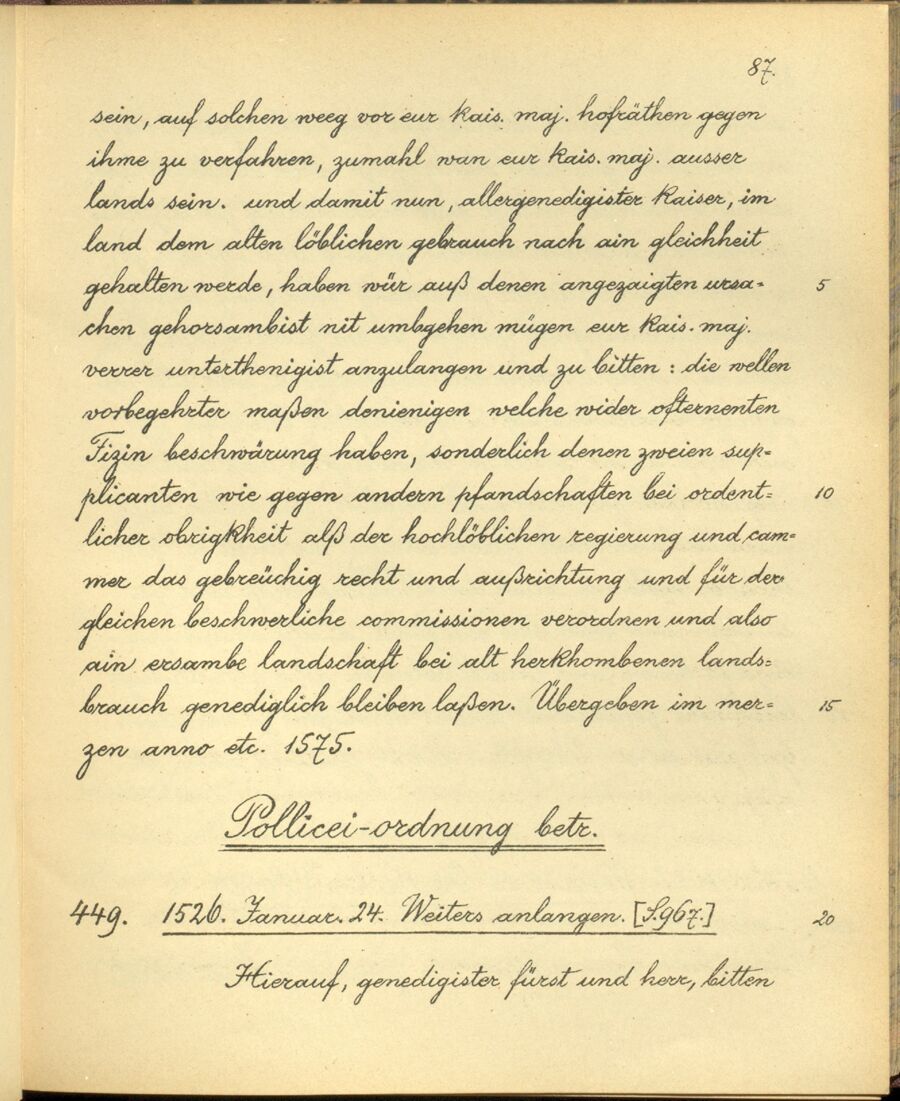 87.
sein, auf solchen weeg vor eur kais. maj. hofräthen gegen
ihme zu verfahren, zumahl wan eur kais. maj. ausser
lands sein. und damit nun, allergenedigister kaiser, im
land dem alten löblichen gebrauch nach ain gleichheit
gehalten werde, haben wür auß denen angezaigten ursa= 5
chen gehorsambist nit umbgehen mügen eur kais. maj.
verrer unterthenigist anzulangen und zu bitten : die wellen
vorbegehrter maßen denienigen welche wider ofternenten
Fizin beschwärung haben, sonderlich denen zweien sup=
plicanten wie gegen andern pfandschaften bei ordent= 10
licher obrigkheit alß der hochlöblichen regierung und cam=
mer das gebreüchig recht und außrichtung und für der=
gleichen beschwerliche commissionen verordnen und also
ain ersambe landschaft bei alt herkhombenen lands=
brauch genediglich bleiben laßen. Übergeben im mer= 15
zen anno etc. 1575.
Pollicei-ordnung betr.
449. 1526. Januar. 24. Weiters anlangen. [S.967.] 20
Hierauf, genedigister fürst und herr, bitten